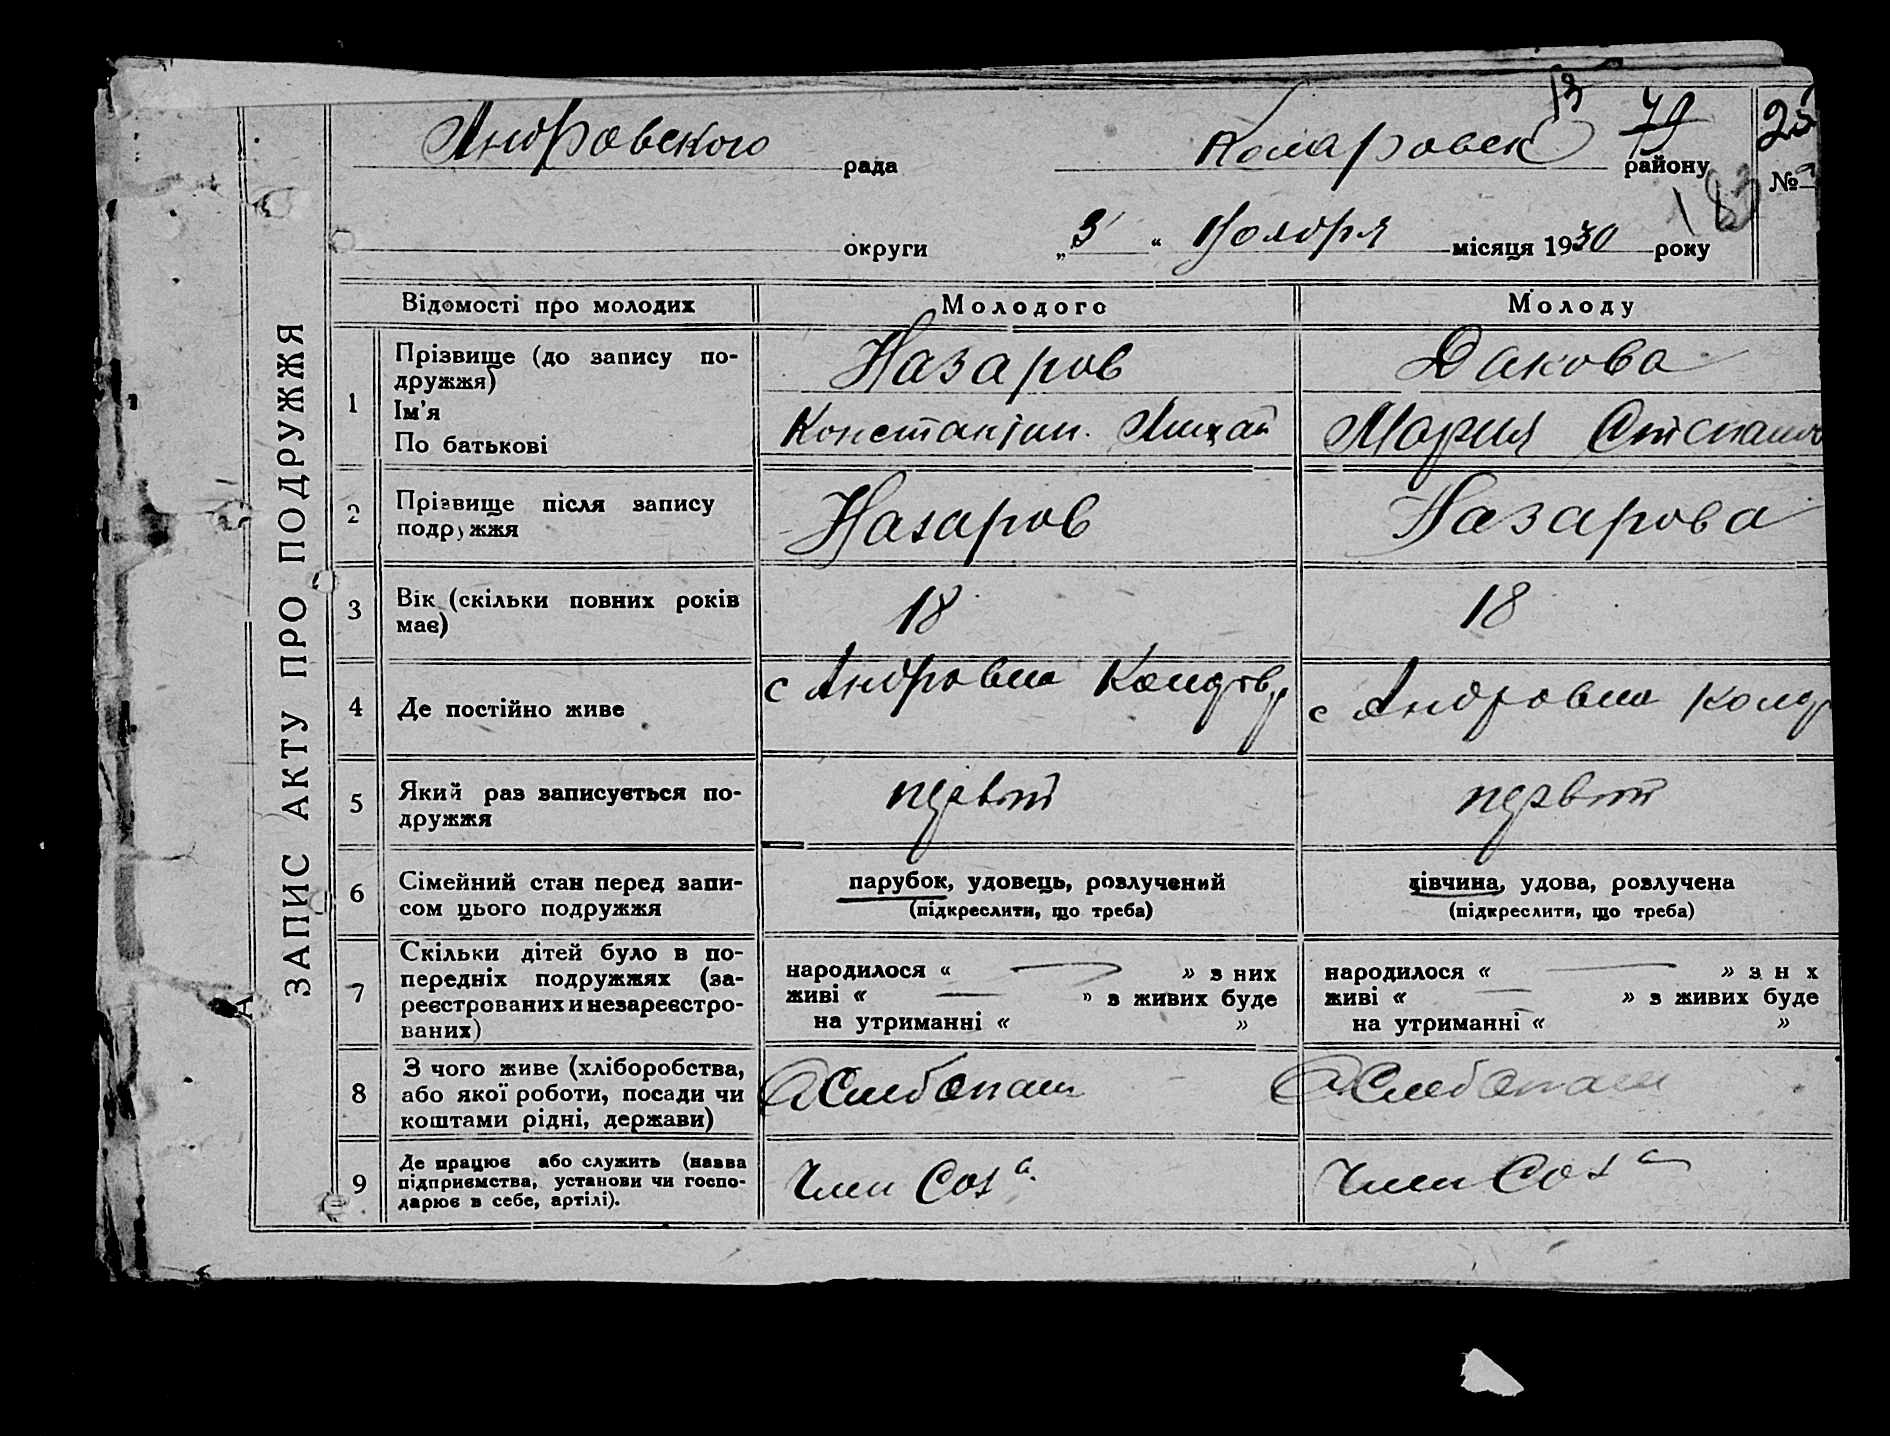 13 49 25
Андровского рада Комаровск району №
183
округи „3“ Ноября місяця 1930 року
ЗАПИС АКТУ ПРО ПОДРУЖЖЯ
Відомості про молодих Молодого Молоду
1 Прізвище (до запису по-
дружжя) Назаров Дакова
Ім'я
По батькові Константин Мария
2 Прізвище після запису
подружжя Назаров Назарова
3 Вік (скільки повних років
має) 18 18
4 Де постійно живе с Андровка с Андровка
5 Який раз записується по-
дружжя первый первый
6 Сімейний стан перед запи-
сом цього подружжя
парубок, удовець, розлучений дівчина, удова, розлучена
(підкреслити, що треба) (підкреслити, що треба)
7 Скільки дітей було в по-
передніх подружжях (за-
реєстрованих и незареєстро-
ваних)
народилося « — » з них народилося « — » з н х
живі « — » з живих буде живі « — » з живих буде
на утриманні « » на утриманні « »
8 З чого живе (хліборобства,
або якої роботи, посади чи
коштами рідні, держави)
9 Де працює або служить (назва
підприємства, установи чи госпо-
дарює в себе, артілі).
Член Соза Член Соза